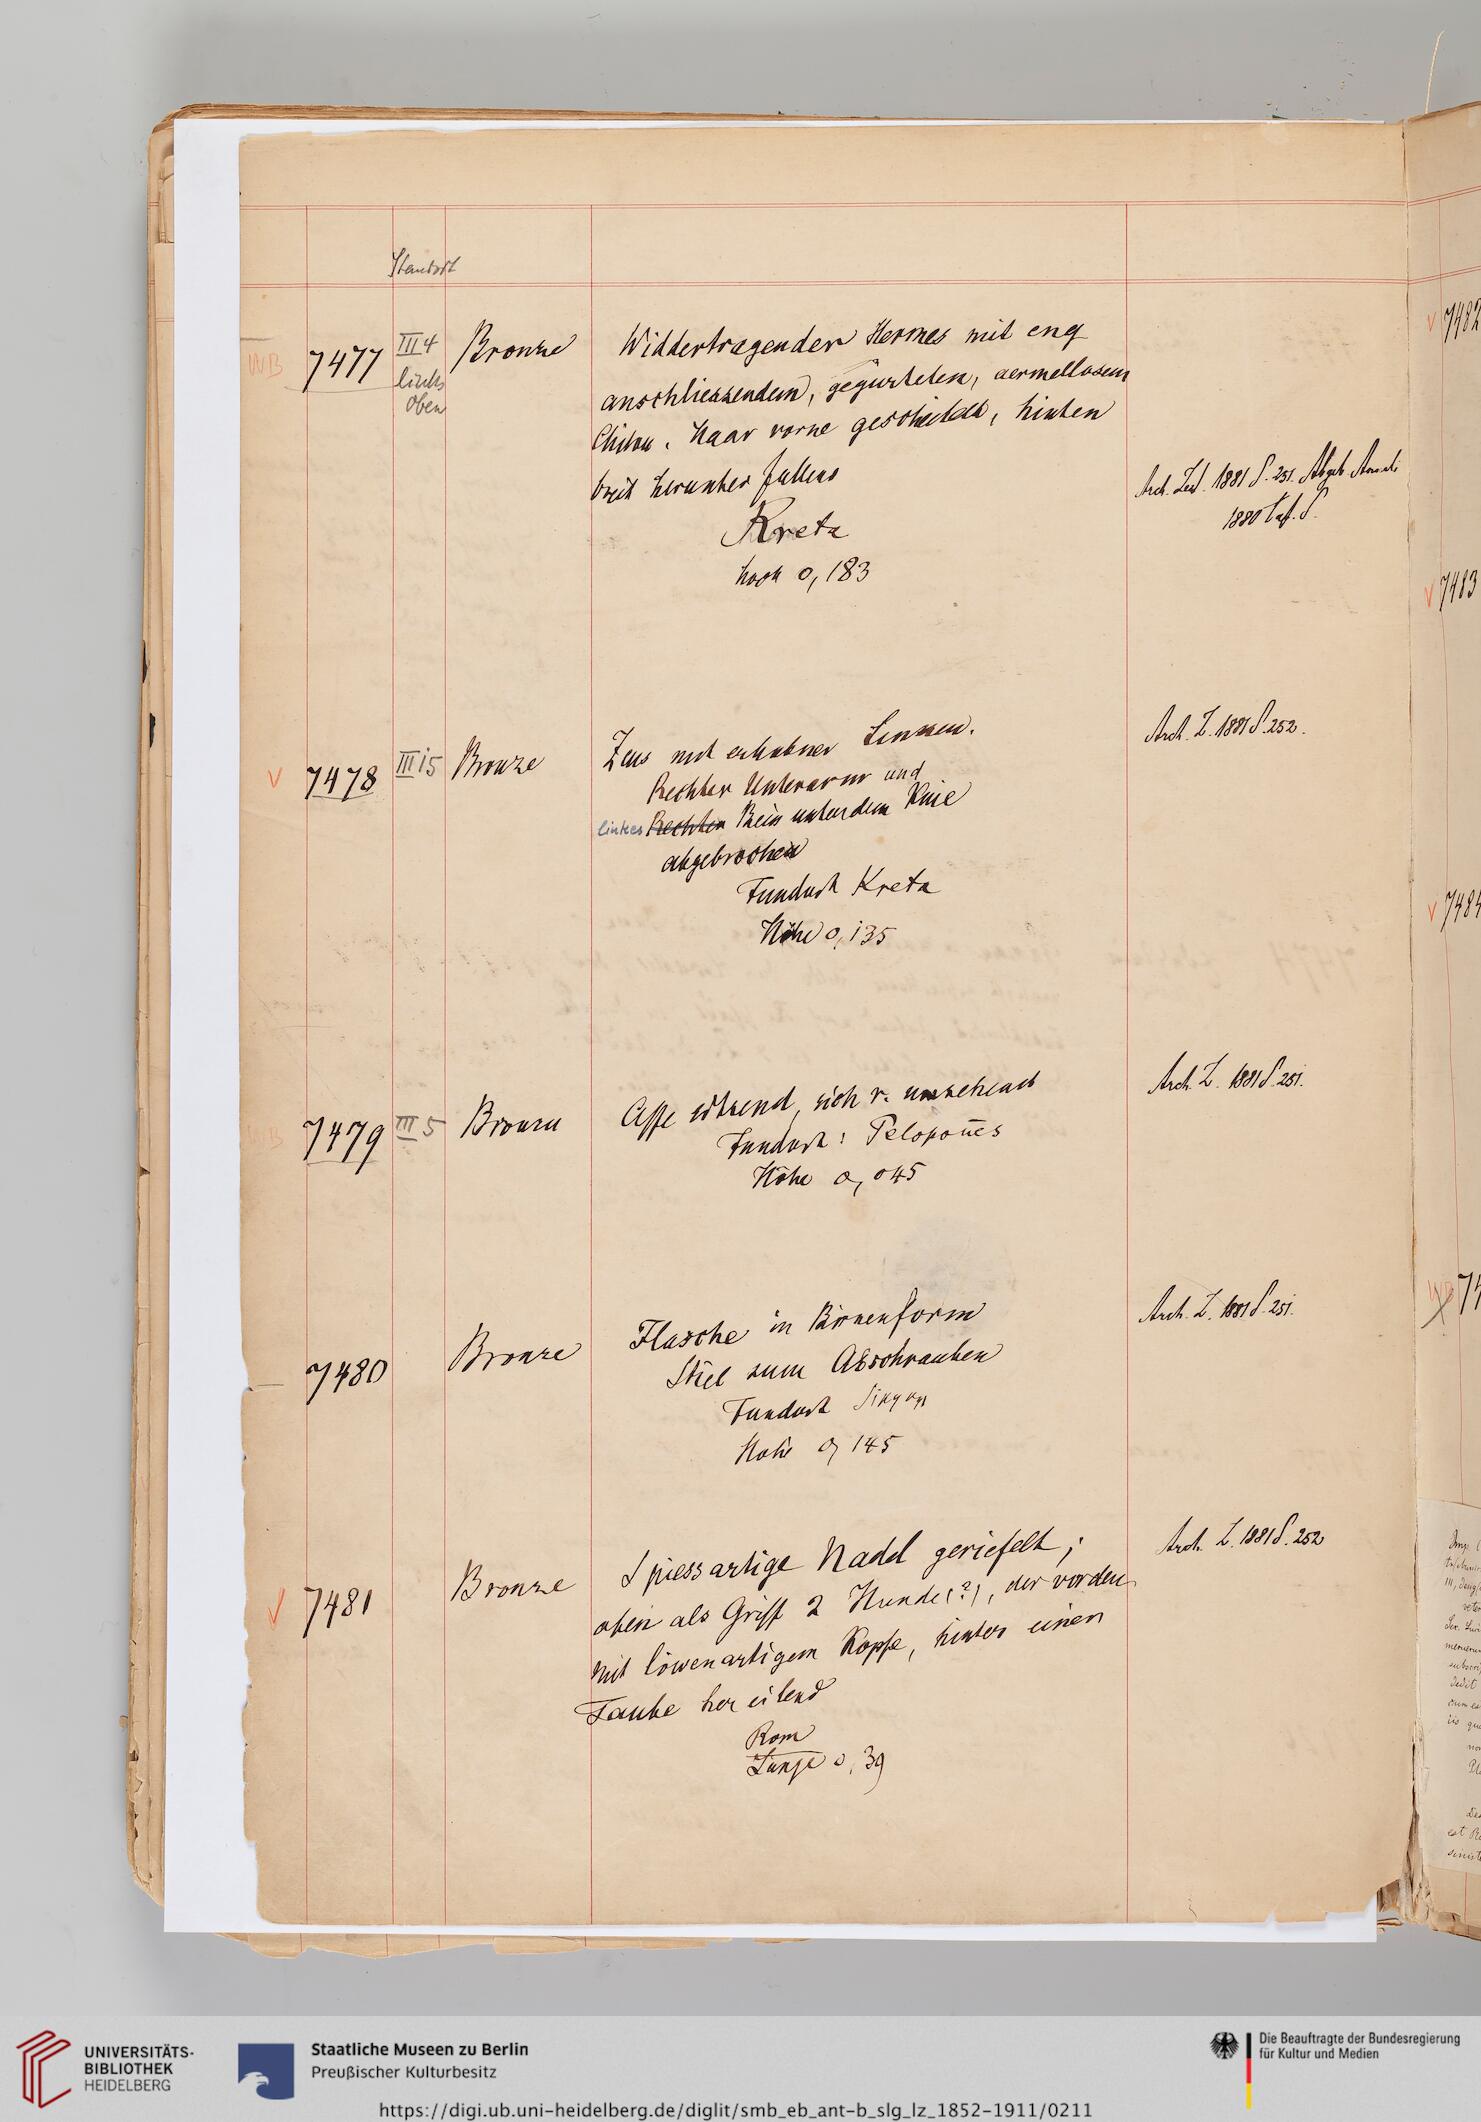 Standort
WB 7477 III 4 links oben Bronze
Widdertragender Hermes mit eng
anschliessendem, gegürteten, aermellosem
Chiton. Haar vorne gescheitelt, hinten
breit herunter fallend
Kreta
hoch 0,183
Arch. Zeit. 1881 S. 251. Abgeb. Annali
1880 taf. S.
v 7478 III i5 Bronze
Zeus mit erhobner Linken.
Rechter Unterarm und
linkes Rechter Bein unter dem Knie
abgebrochen
Fundort Kreta
Höhe 0,135
Arch. Z. 1881 S. 252.
WB 7479 III 5 Bronze
Affe sitzend, sich r. umsehend
Fundort: Peloponn̄es
Höhe 0,045
Arch. Z. 1881 S. 251.
7480 Bronze
Flasche in Birnenform
Stiel zum Abschrauben
Fundort Sikyon
Höhe 0,145
Arch. Z. 1881 S. 251.
v 7481 Bronze
Spiessartige Nadel geriefelt;
oben als Griff 2 Hunde(?), der vordere
mit löwenartigem Kopfe, hinter einer
Taube her eilend
Rom
Länge 0,39
Arch. Z. 1881 S. 252
v 7482
v 7483
v 7484
WB 74
UNIVERSITÄTS-
BIBLIOTHEK
HEIDELBERG
Staatliche Museen zu Berlin
Preußischer Kulturbesitz
Die Beauftragte der Bundesregierung
für Kultur und Medien
https://digi.ub.uni-heidelberg.de/diglit/smb_eb_ant-b_slg_lz_1852-1911/0211